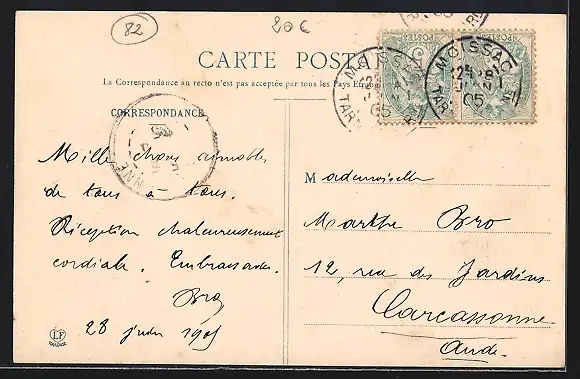 82
20 €
CARTE POSTALE
La Correspondance au recto n'est pas acceptée par tous les Pays Etrangers
CORRESPONDANCE
MOISSAC
05
MOISSAC
05
Mille choses aimables
de tous à tous.
Réception chaleureusement
cordiale. Embrassades.
Bro
28 juin 1905
Mademoiselle
Marthe Bro
12, rue des Jardins
Carcassonne
Aude.
LF